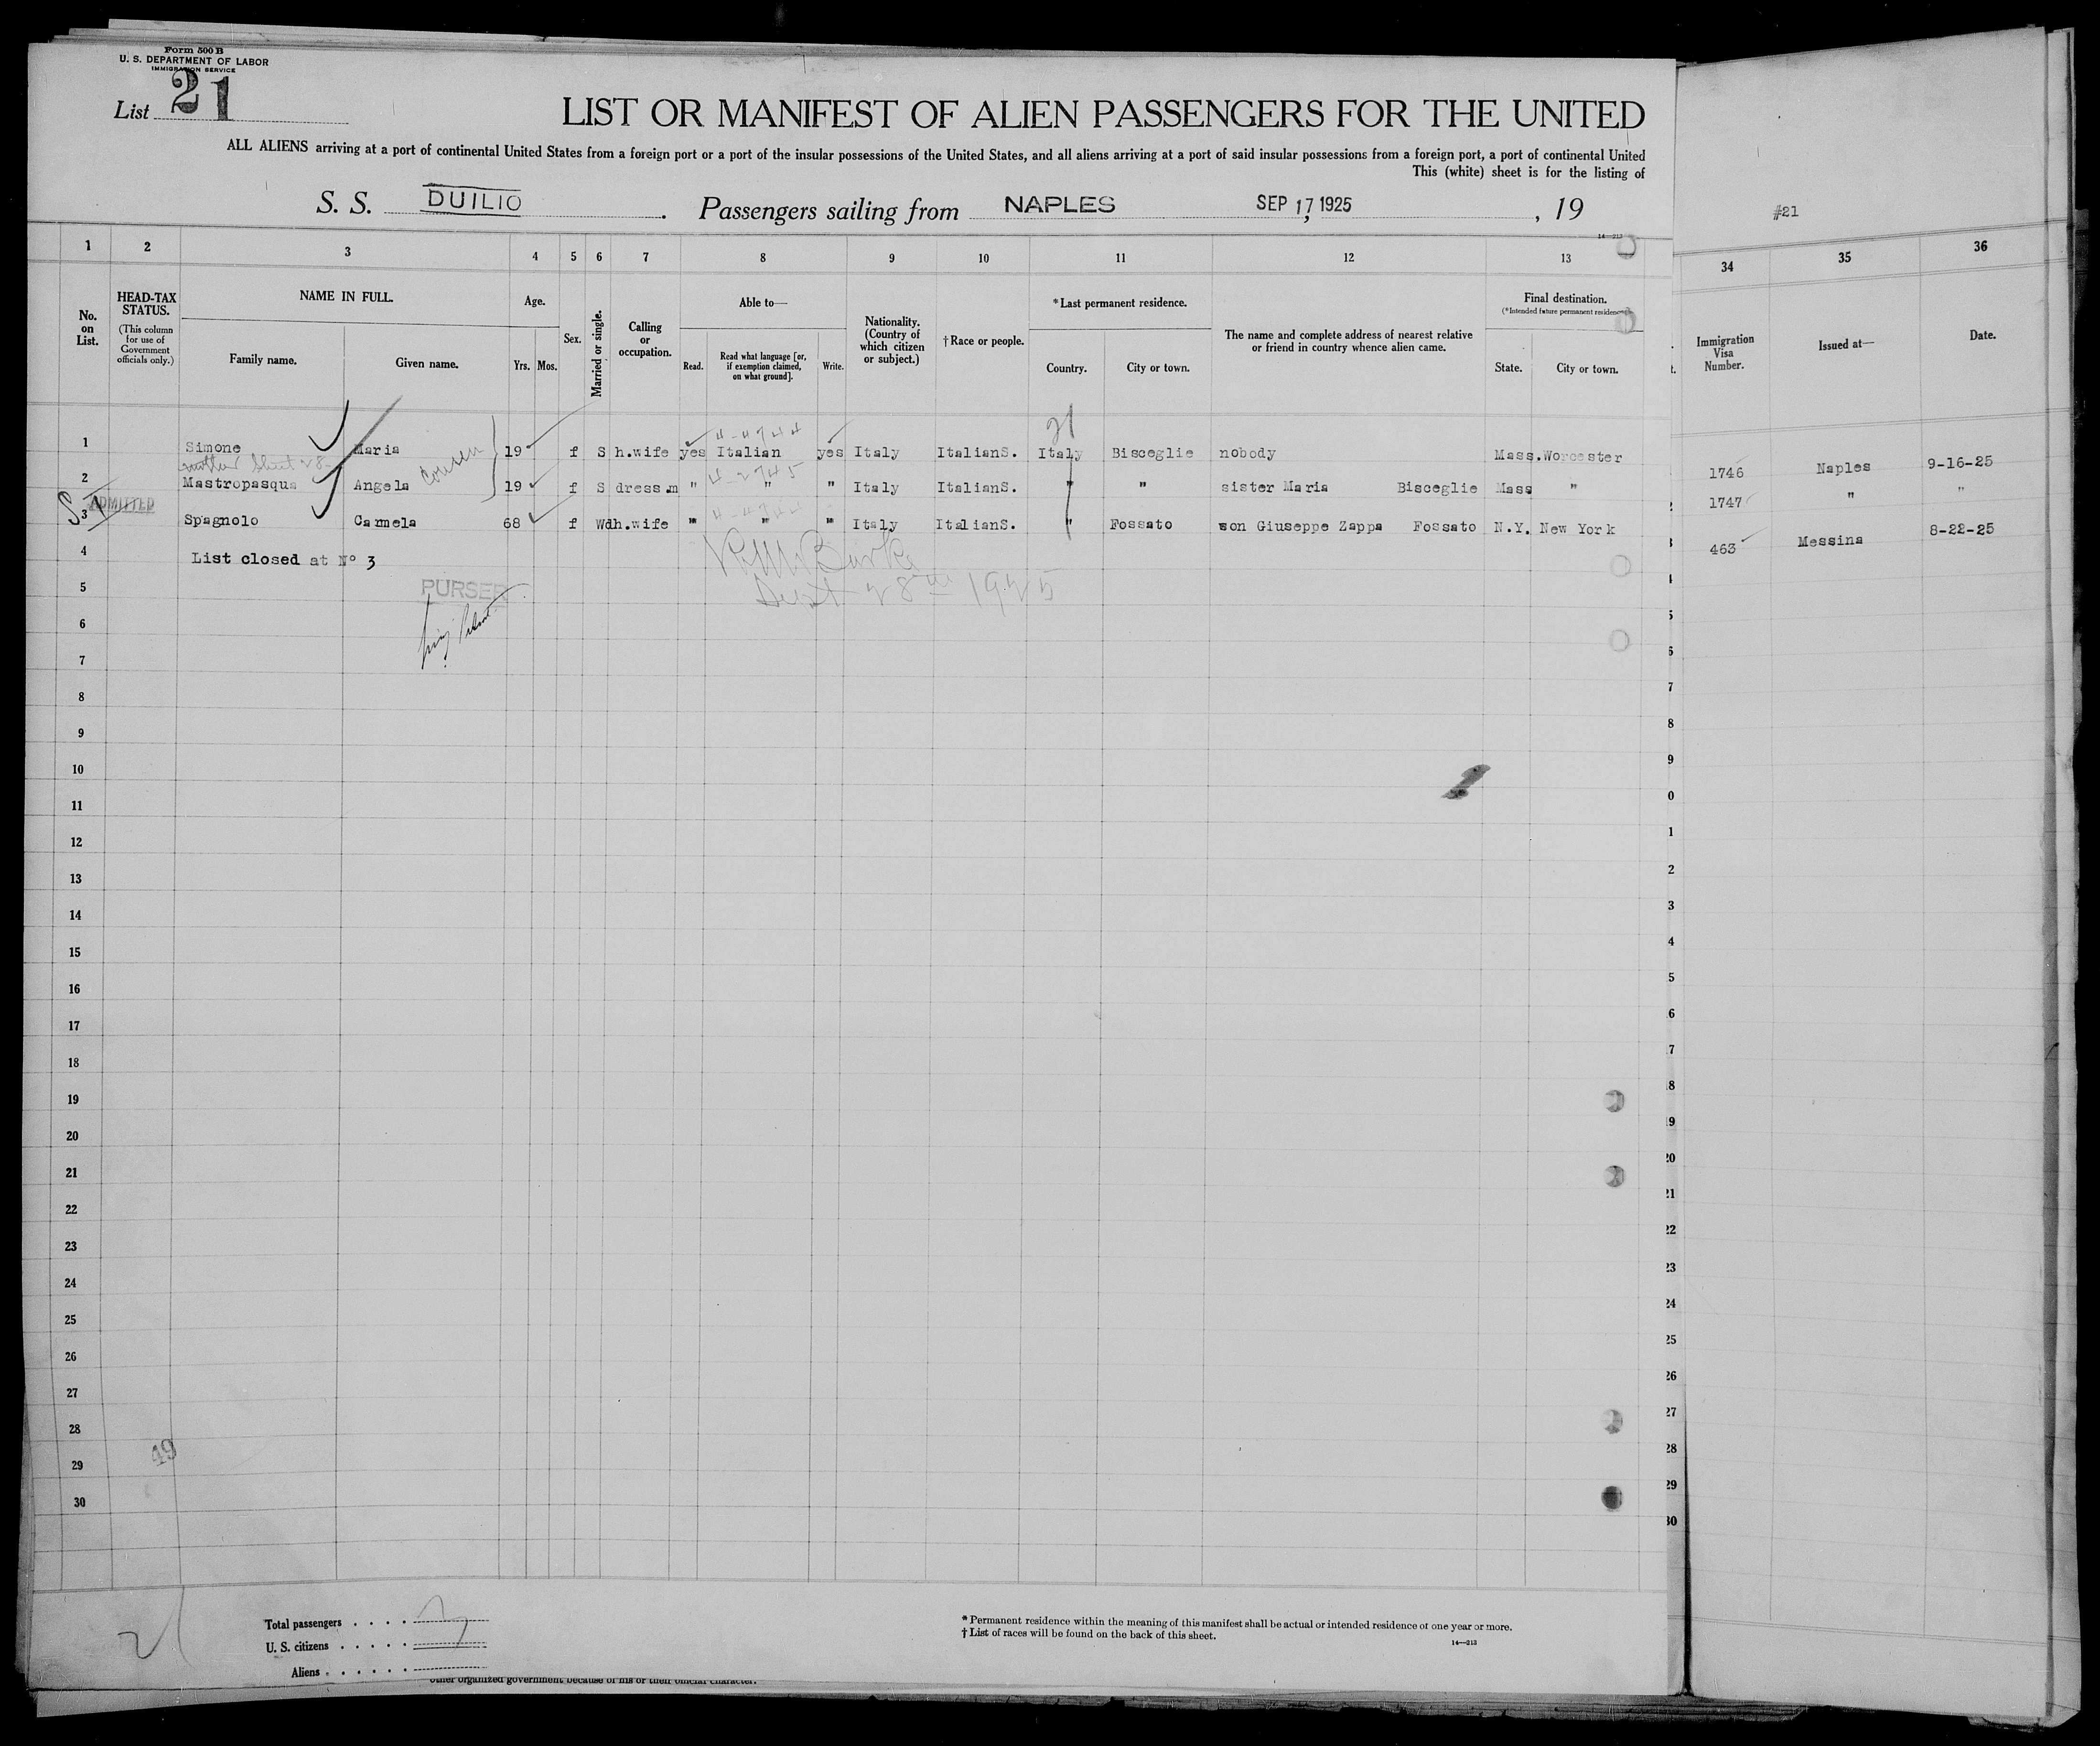 Form 500 B
U. S. DEPARTMENT OF LABOR
IMMIGRATION SERVICE
List 21
LIST OR MANIFEST OF ALIEN PASSENGERS FOR THE UNITED
ALL ALIENS arriving at a port of continental United States from a foreign port or a port of the insular possessions of the United States, and all aliens arriving at a port of said insular possessions from a foreign port, a port of continental United
This (white) sheet is for the listing of
S. S. DUILIO . Passengers sailing from NAPLES SEP 17 1925 , 19
#21
14—213
1 2 3 4 5 6 7 8 9 10 11 12 13 34 35 36
No. on List.
HEAD-TAX STATUS.
(This column for use of Government officials only.)
NAME IN FULL.
Family name. Given name.
Age.
Yrs. Mos.
Sex.
Married or single.
Calling or occupation.
Able to—
Read. Read what language [or, if exemption claimed, on what ground]. Write.
Nationality. (Country of which citizen or subject.)
†Race or people.
*Last permanent residence.
Country. City or town.
The name and complete address of nearest relative or friend in country whence alien came.
Final destination.
(*Intended future permanent residence)
State. City or town.
Immigration Visa Number.
Issued at—
Date.
21
4-4744
1 Simone Maria 19 f S h.wife yes Italian yes Italy ItalianS. Italy Bisceglie nobody Mass. Worcester 1746 Naples 9-16-25
mother Sheet 28
cousen
4-2745
2 Mastropasqua Angela 19 f S dress.m " " " Italy ItalianS. " " sister Maria Bisceglie Mass " 1747 " "
ADMITTED
3 Spagnolo Carmela 68 f Wd h.wife " " " Italy ItalianS. " Fossato son Giuseppe Zappa Fossato N.Y. New York 463 Messina 8-22-25
4 List closed at N° 3
Burke
Sept 28th 1925
5 PURSER
6
7
8
9
10
11
12
13
14
15
16
17
18
19
20
21
22
23
24
25
26
27
28
49
29
30
21
Total passengers . . . . 3
U. S. citizens . . . . .
Aliens . . . . . .
* Permanent residence within the meaning of this manifest shall be actual or intended residence of one year or more.
† List of races will be found on the back of this sheet.
14—213
other organized government because of his or their official character.